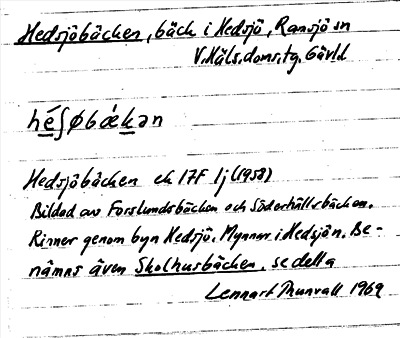 Hedsjöbäcken, bäck i Hedsjö, Ramsjö sn
V. Häls. doms. tg. Gävl. l
hé∫øbǽkən
Hedsjöbäcken ek 17F 1j (1958)
Bildad av Forslundsbäcken och Söderhällsbäcken.
Rinner genom byn Hedsjö. Mynnar i Hedsjön. Be-
nämns även Skolhusbäcken, se detta
Lennart Thunvall 1969